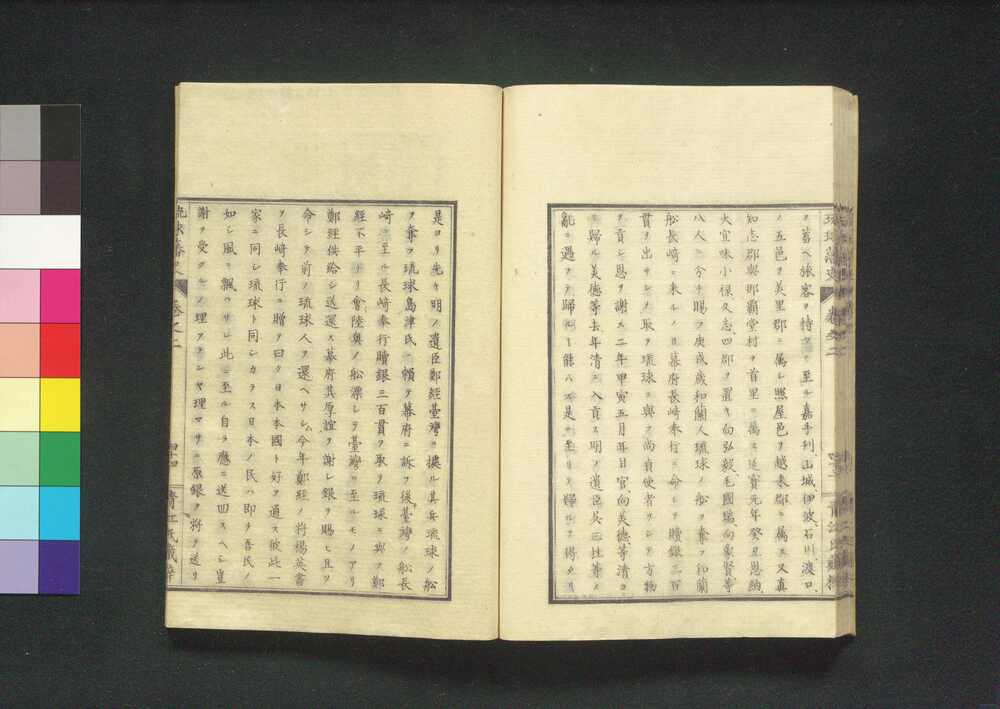 ヲ蓄ヘ旅客ヲ待ツニ至ル嘉手刈、山城、伊波、石川、渡口、
ノ五邑ヲ美里郡ニ属シ照屋邑ヲ越来郡ニ属ス又真
知志郡與那覇堂村ヲ首里ニ属ス延寶元年癸丑恩納、
大宜味小禄、久志、四郡ヲ置キ向弘毅、毛國瑞、向象賢等
八人ニ分チ賜フ庚戌歳和蘭人琉球ノ舩ヲ奪フ和蘭
舩長崎ニ来ルノ日幕府長崎奉行ニ命シテ贖銀三百
貫ヲ出サシメ取テ琉球ニ與フ尚貞使者ヲシテ方物
ヲ貢シ恩ヲ謝ス二年甲寅五月耳目官、向美德等清ヨ
リ歸ル美德等去年清ニ入貢ス明ノ遺臣呉三桂等ノ
亂ニ遇テ歸ル能ハス是ニ至リテ歸ルヲ得タリ
是ヨリ先キ明ノ遺臣鄭經臺灣ニ據ル其兵琉球ノ舩
ヲ奪フ琉球島津氏ニ頼テ幕府ニ訴フ後臺灣ノ舩長
崎ニ至ル長崎奉行贖銀三百貫ヲ取テ琉球ニ與フ鄭
經不平ナリ會陸奥ノ舩漂シテ臺灣ニ至ルモノアリ
鄭經供給シ送還ス幕府其厚誼ヲ謝シ銀ヲ賜ヒ且ツ
命シテ前ノ琉球人ヲ還ヘサシム今年鄭經ノ将楊英書
ヲ長崎奉行ニ贈テ曰ク日本本國ト好ヲ通ス彼此一
家ニ同シ琉球ト同シカラス日本ノ民ハ即チ吾民ノ
如シ風ニ飄ハサレ此ニ至ル自ラ應ニ送回スヘシ豈
謝ヲ受クルノ理アランヤ理マサニ原銀ヲ将テ送リ
琉球藩史 巻之二
四十四